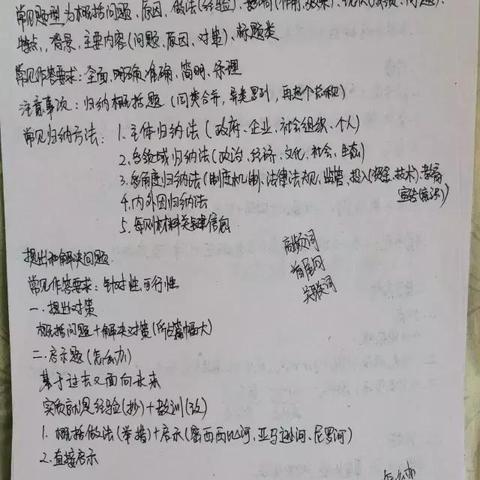 常见题型为概括问题、原因、做法(经验)、影响(作用、效果)、
特点、背景、主要内容(问题、原因、对策)、标题类
常见作答要求：全面、明确、准确、简明、条理
注意事项：归纳概括题(同类合并，异类罗列，再想个总称)
常见归纳方法：1.主体归纳法(政府、企业、社会组织、个人)
2.各领域归纳法(政治、经济、文化、社会、生态)
3.多角度归纳法(制度机制、法律法规、监管、投入(资金、技术)、教育
宣传(意识))
4.内外因归纳法
5.每则材料关键信息
高频词
首尾句
关联词
提出和解决问题
常见作答要求：针对性、可行性
一.提出对策
概括问题+解决对策(所占篇幅大)
二.启示题(怎么办)
基于过去又面向未来
实质就是经验(抄)+教训(改)
1.概括做法(举措)+启示(密西西比河、亚马逊河、尼罗河)
2.直接启示
怎么办